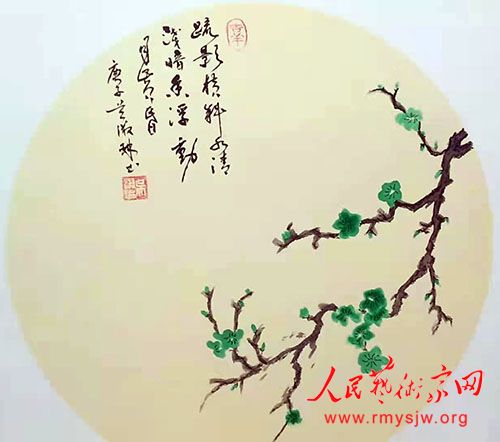 疏影横斜水清
浅暗香浮動
月黄昏
庚子
人民藝術家网
www.rmysjw.org